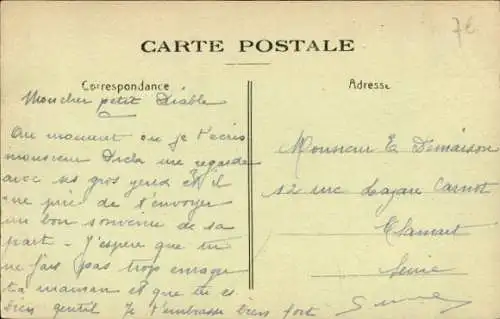 7E
CARTE POSTALE
Correspondance
Adresse
Mon cher petit Diable
Au moment ou je t'ecris
monsieur me regarde
avec ses gros yeux et il
me prie de t'envoyer
un bon souvenir de sa
part - J'espère que tu
ne fais pas trop enrager
ta maman et que tu es
bien gentil Je t'embrasse bien fort
Monsieur E Demaison
12 rue Lazare Carnot
Clamart
Seine